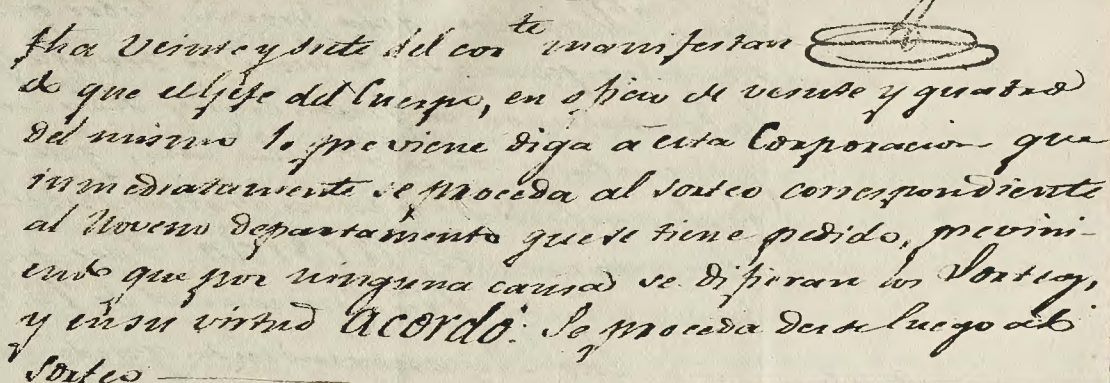 fha veinte y siete del cor.te manifestan
do que el Jefe del Cuerpo, en oficio de veinte y quatro
del mismo le previene diga à esta Corporacion que
inmediatamente se proceda al sorteo correspondiente
al Noveno departamento que se tiene pedido, previni-
endo que por ninguna causa se difieran los Sorteos,
y en su virtud acordó: Se proceda desde luego al
sorteo